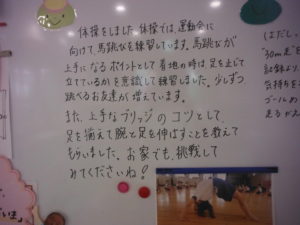 体操をしました。体操では、運動会に
向けて、馬跳びを練習しています。馬跳びが
上手になるポイントとして着地の時は、足を上じて
立てているかを意識して練習しました。少しずつ
跳べるお友達が増えています。
また、上手なブリッジのコツとして
足を揃えて腕と足を伸ばすことを教えて
もらいました。お家でも、挑戦して
みてくださいね！
(はだし
"30m走"
記録より
気持ちを
ゴールめ
走るが